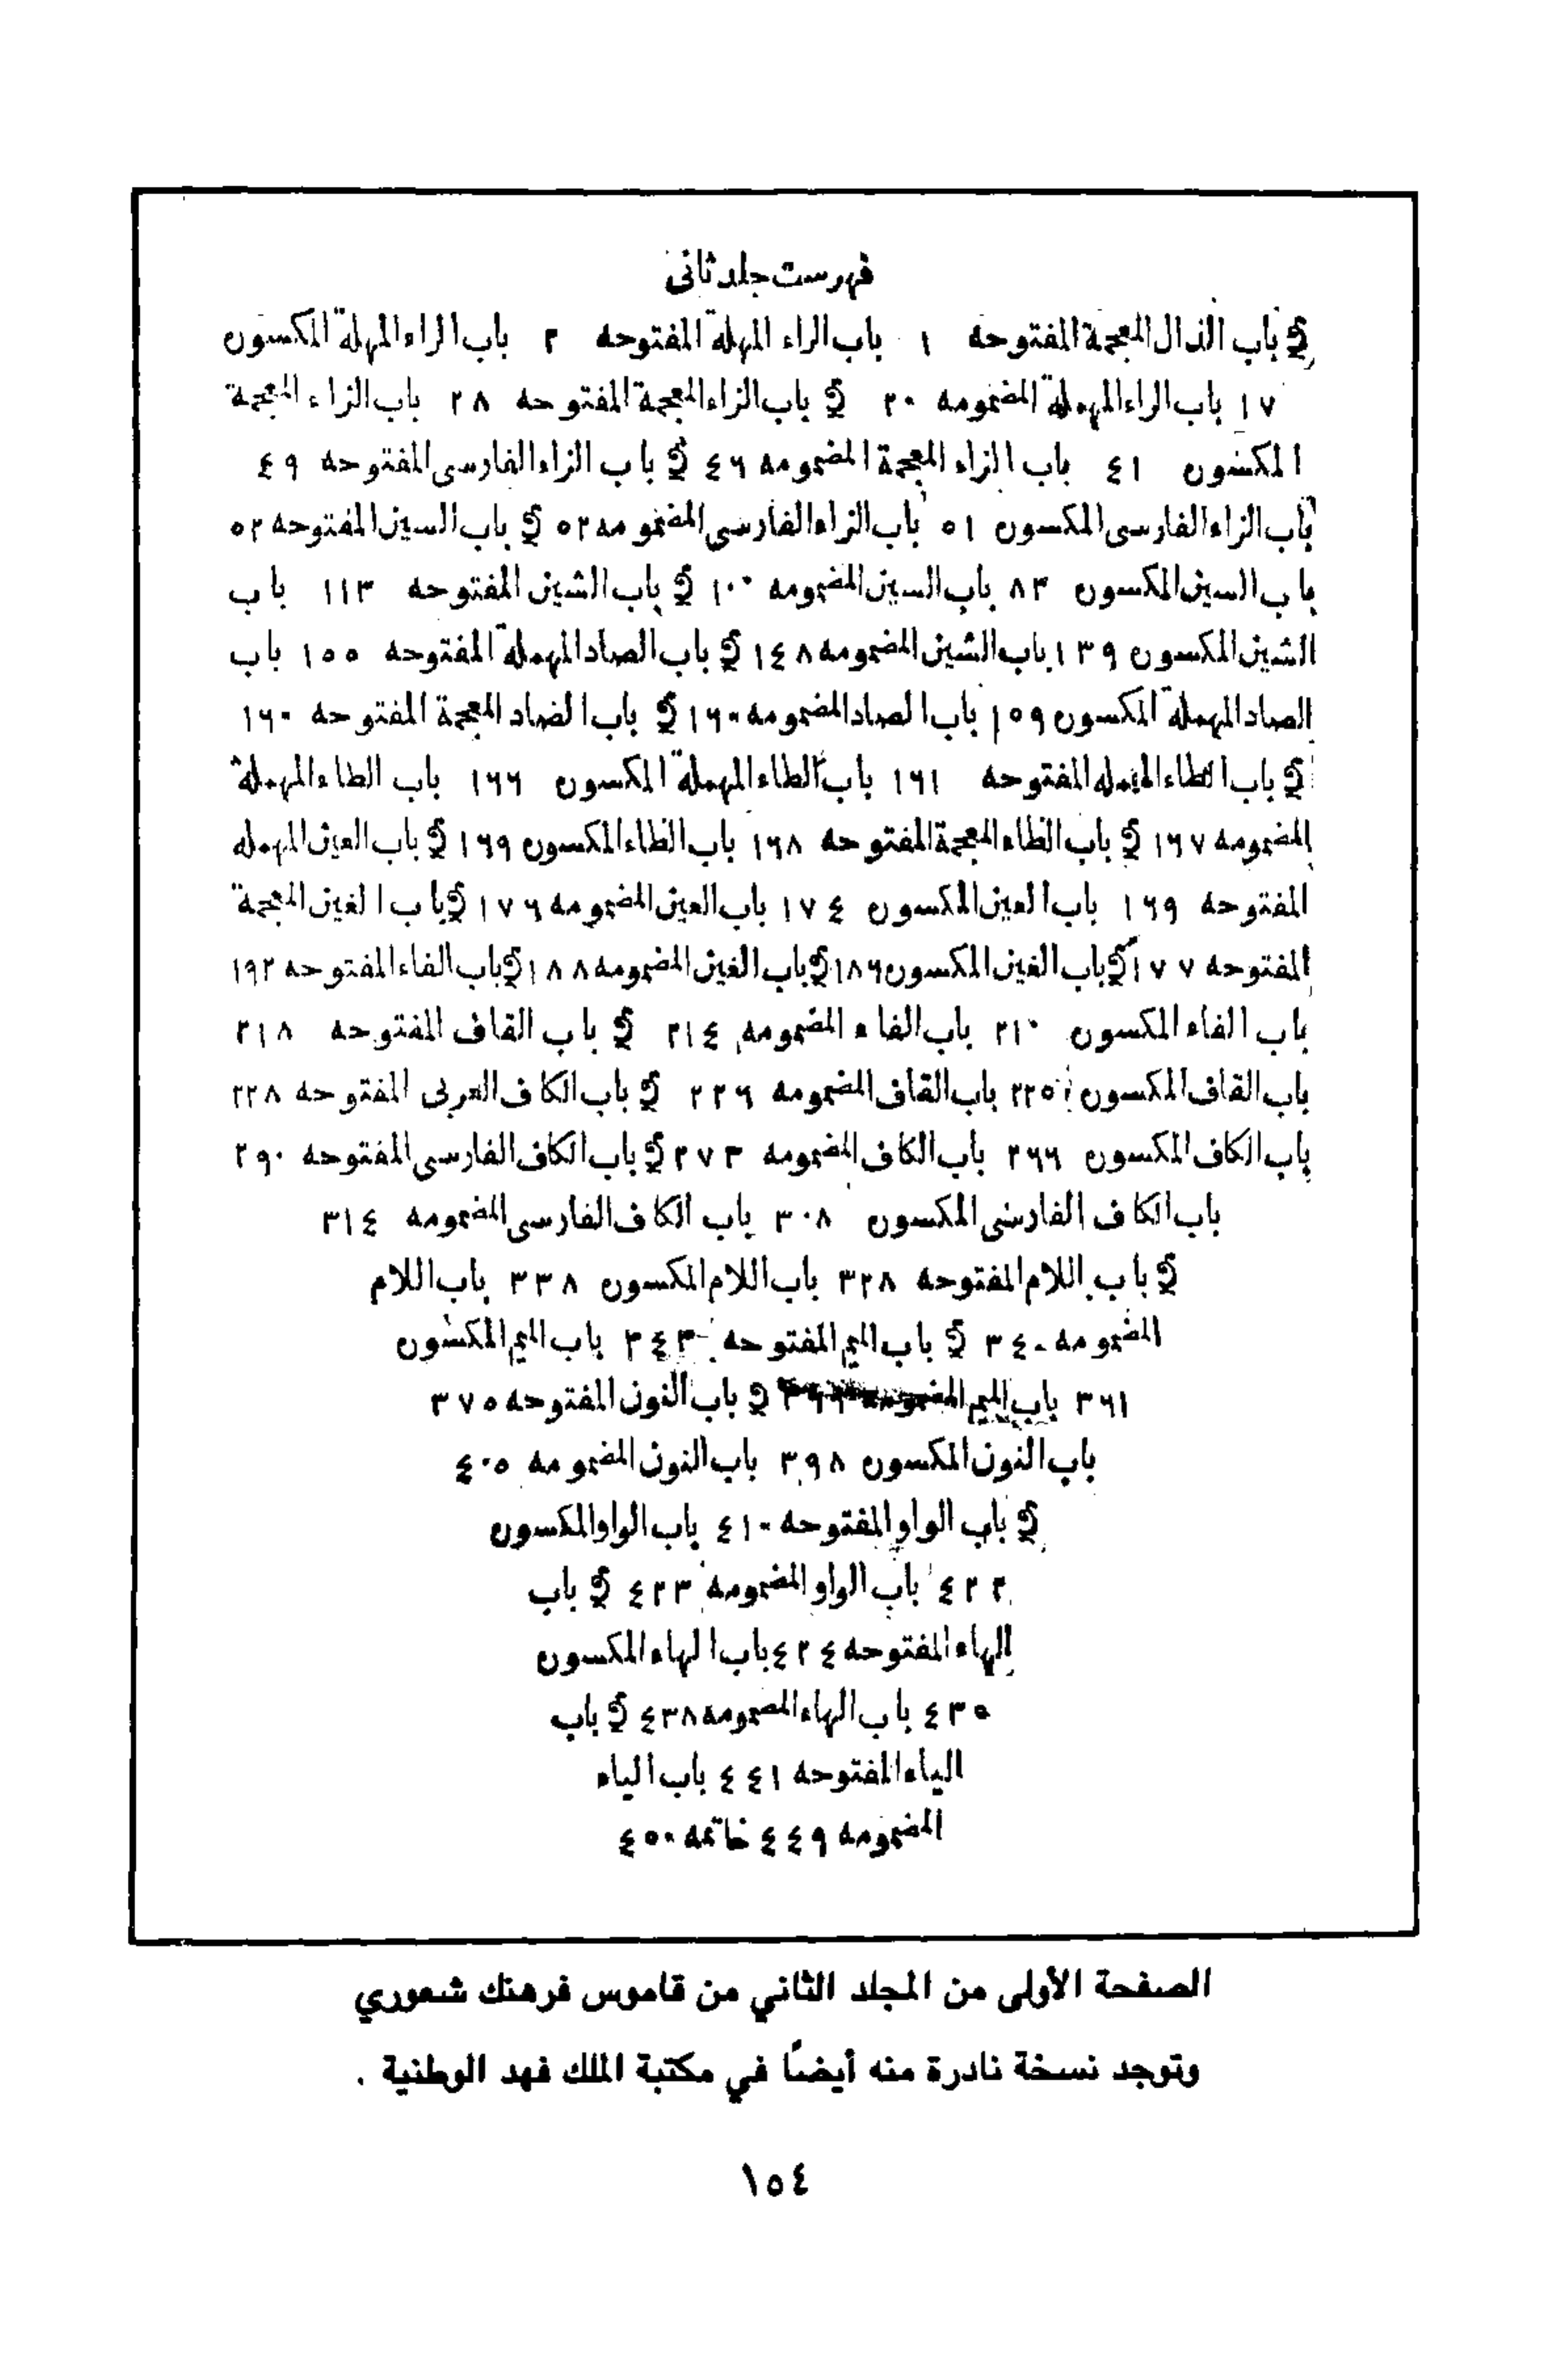 فهرست جلد ثانى
في باب الذال المعجمة المفتوحه ١ باب الراء المهلة المفتوحه ٢ باب الراء المهلة المكسون
١٧ باب الراء المهملة المضمومه ٢٠ في باب الزاء المعجمة المفتوحه ٢٨ باب الزاء المعجمة
المكسون ٤١ باب الزاء المعجمة المضمومه ٤٦ في باب الزاء الفارسى المفتوحه ٤٩
باب الزاء الفارسى المكسون ٥١ باب الزاء الفارسى المضمومه ٥٢ في باب السين المفتوحه ٥٢
باب السين المكسون ٨٣ باب السين المضمومه ١٠٠ في باب الشين المفتوحه ١١٣ باب
الشين المكسون ١٣٩ باب الشين المضمومه ١٤٨ في باب الصاد المهملة المفتوحه ١٥٥ باب
الصاد المهملة المكسون ١٥٩ باب الصاد المضمومه ١٦٠ في باب الضاد المعجمة المفتوحه ١٦٠
في باب الطاء المهمله المفتوحه ١٦١ باب الطاء المهملة المكسون ١٦٦ باب الطاء المهملة
المضمومه ١٦٧ في باب الظاء المعجمة المفتوحه ١٦٨ باب الظاء المكسون ١٦٩ في باب العين المهمله
المفتوحه ١٦٩ باب العين المكسون ١٧٤ باب العين المضمومه ١٧٦ في باب الغين المعجمة
المفتوحه ١٧٧ في باب الغين المكسون ١٨٦ في باب الغين المضمومه ١٨٨ في باب الفاء المفتوحه ١٩٢
باب الفاء المكسون ٢١٠ باب الفاء المضمومه ٢١٤ في باب القاف المفتوحه ٢١٨
باب القاف المكسون ٢٢٥ باب القاف المضمومه ٢٢٦ في باب الكاف العربى المفتوحه ٢٢٨
باب الكاف المكسون ٢٦٦ باب الكاف المضمومه ٢٧٣ في باب الكاف الفارسى المفتوحه ٢٩٠
باب الكاف الفارسى المكسون ٣٠٨ باب الكاف الفارسى المضمومه ٣١٤
في باب اللام المفتوحه ٣٢٨ باب اللام المكسون ٣٣٨ باب اللام
المضمومه ٣٤٠ في باب الميم المفتوحه ٣٤٣ باب الميم المكسون
٣٦١ باب الميم المضمومه في باب النون المفتوحه ٣٧٥
باب النون المكسون ٣٩٨ باب النون المضمومه ٤٠٥
في باب الواو المفتوحه ٤١٠ باب الواو المكسون
٤٢٢ باب الواو المضمومه ٤٢٣ في باب
الهاء المفتوحه ٤٢٤ باب الهاء المكسون
٤٣٥ باب الهاء المضمومه ٤٣٨ في باب
الياء المفتوحه ٤٤١ باب الياء
المضمومه ٤٤٩ خاتمه ٤٥٠
الصفحة الأولى من المجلد الثاني من قاموس فرهنك شعوري
وتوجد نسخة نادرة منه أيضًا في مكتبة الملك فهد الوطنية .
١٥٤